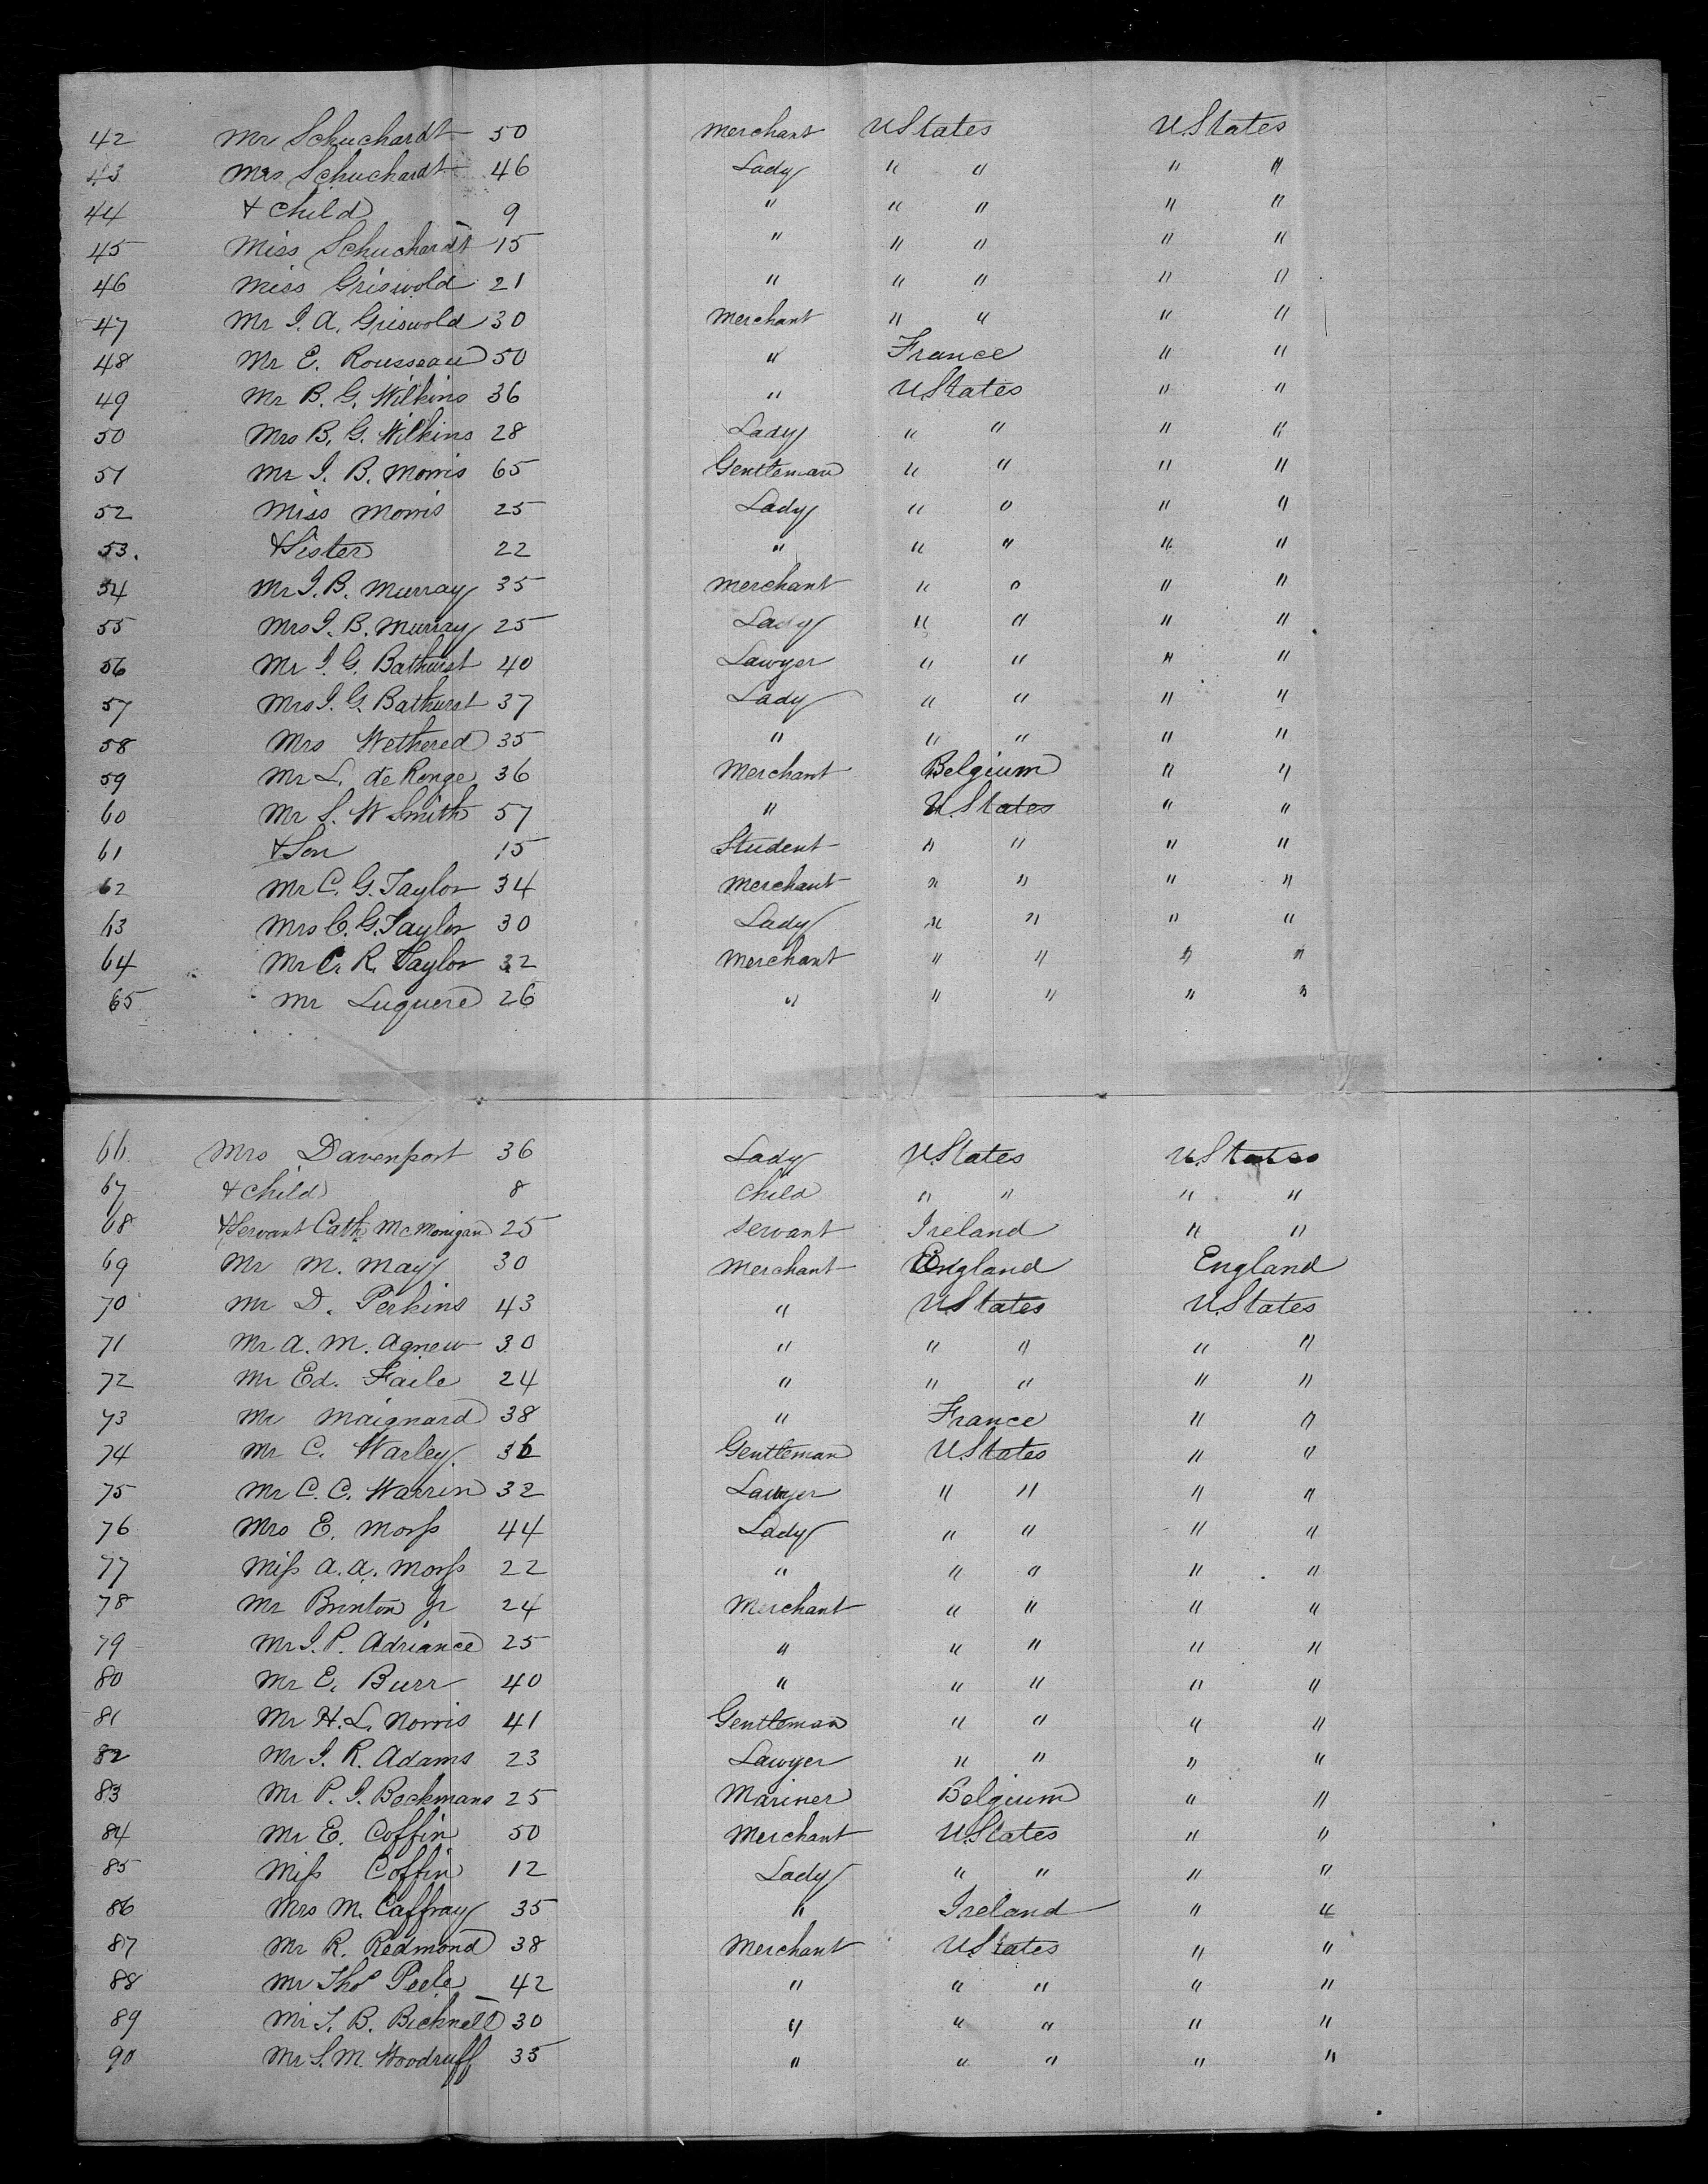 42 Mr Schuchardt 50 Merchant UStates UStates
43 Mrs Schuchardt 46 Lady " " " "
44 & child 9 " " " " "
45 Miss Schuchardt 15 " " " " "
46 Miss Griswold 21 " " " " "
47 Mr J. A. Griswold 30 Merchant " " " "
48 Mr E. Rousseau 50 " France " "
49 Mr B. G. Wilkins 36 " UStates " "
50 Mrs B. G. Wilkins 28 Lady " " " "
51 Mr J. B. Morris 65 Gentleman " " " "
52 Miss Morris 25 Lady " " " "
53. & Sister 22 " " " " "
54 Mr J. B. Murray 35 Merchant " " " "
55 Mrs J. B. Murray 25 Lady " " " "
56 Mr J. G. Bathurst 40 Lawyer " " " "
57 Mrs J. G. Bathurst 37 Lady " " " "
58 Mrs Wethered 35 " " " " "
59 Mr L. de Ronge 36 Merchant Belgium " "
60 Mr S. W Smith 57 " U.States " "
61 & Son 15 Student " " " "
62 Mr C. G. Taylor 34 Merchant " " " "
63 Mrs C. G. Taylor 30 Lady " " " "
64 Mr C. R. Taylor 32 Merchant " " " "
65 Mr Luquere 26 " " " " "
66 Mrs Davenport 36 Lady U.States U.States
67 & child 8 Child " " " "
68 & Servant Cath McMonigan 25 Servant Ireland " "
69 Mr M. May 30 Merchant England England
70 Mr D. Perkins 43 " UStates U.States
71 Mr A. M. Agnew 30 " " " " "
72 Mr Ed. Faile 24 " " " " "
73 Mr Maignard 38 " France " "
74 Mr C. Warley. 36 Gentleman U.States " "
75 Mr C. C. Warren 32 Lawyer " " " "
76 Mrs E. Morss 44 Lady " " " "
77 Miss A. A. Morss 22 " " " " "
78 Mr Brinton Jr 24 Merchant " " " "
79 Mr J. P. Adriance 25 " " " " "
80 Mr E. Burr 40 " " " " "
81 Mr H. L. Norris 41 Gentleman " " " "
82 Mr J. R. Adams 23 Lawyer " " " "
83 Mr P. J. Beckmans 25 Mariner Belgium " "
84 Mr E. Coffin 50 Merchant U.States " "
85 Miss Coffin 12 Lady " " " "
86 Mrs M. Caffray 35 " Ireland " "
87 Mr R. Redmond 38 Merchant U.States " "
88 Mr Thos Peele 42 " " " " "
89 Mr J. B. Bicknell 30 " " " " "
90 Mr S. M. Woodruff 35 " " " " "